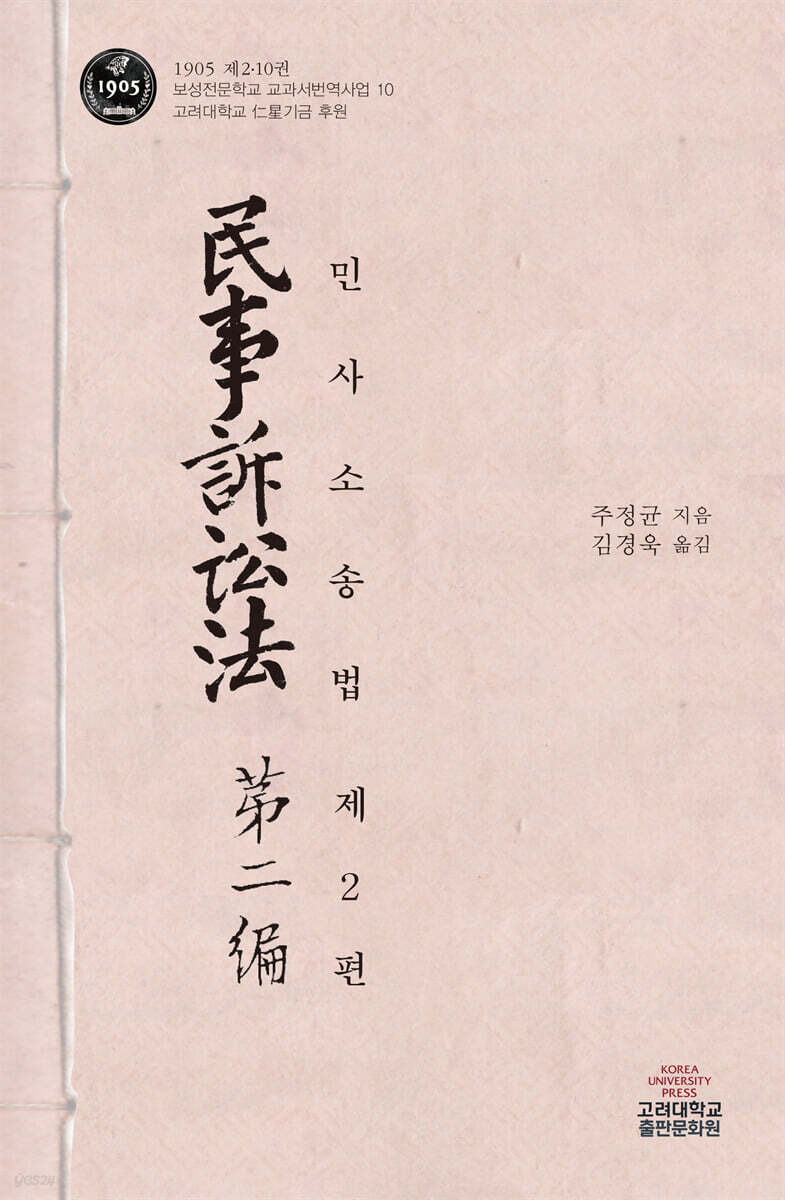 1905
1905 제2·10권
보성전문학교 교과서번역사업 10
고려대학교 仁星기금 후원
民事訴訟法 第二編
민사소송법제2편
주정균 지음
김경욱 옮김
KOREA
UNIVERSITY
PRESS
고려대학교
출판문화원
yes24